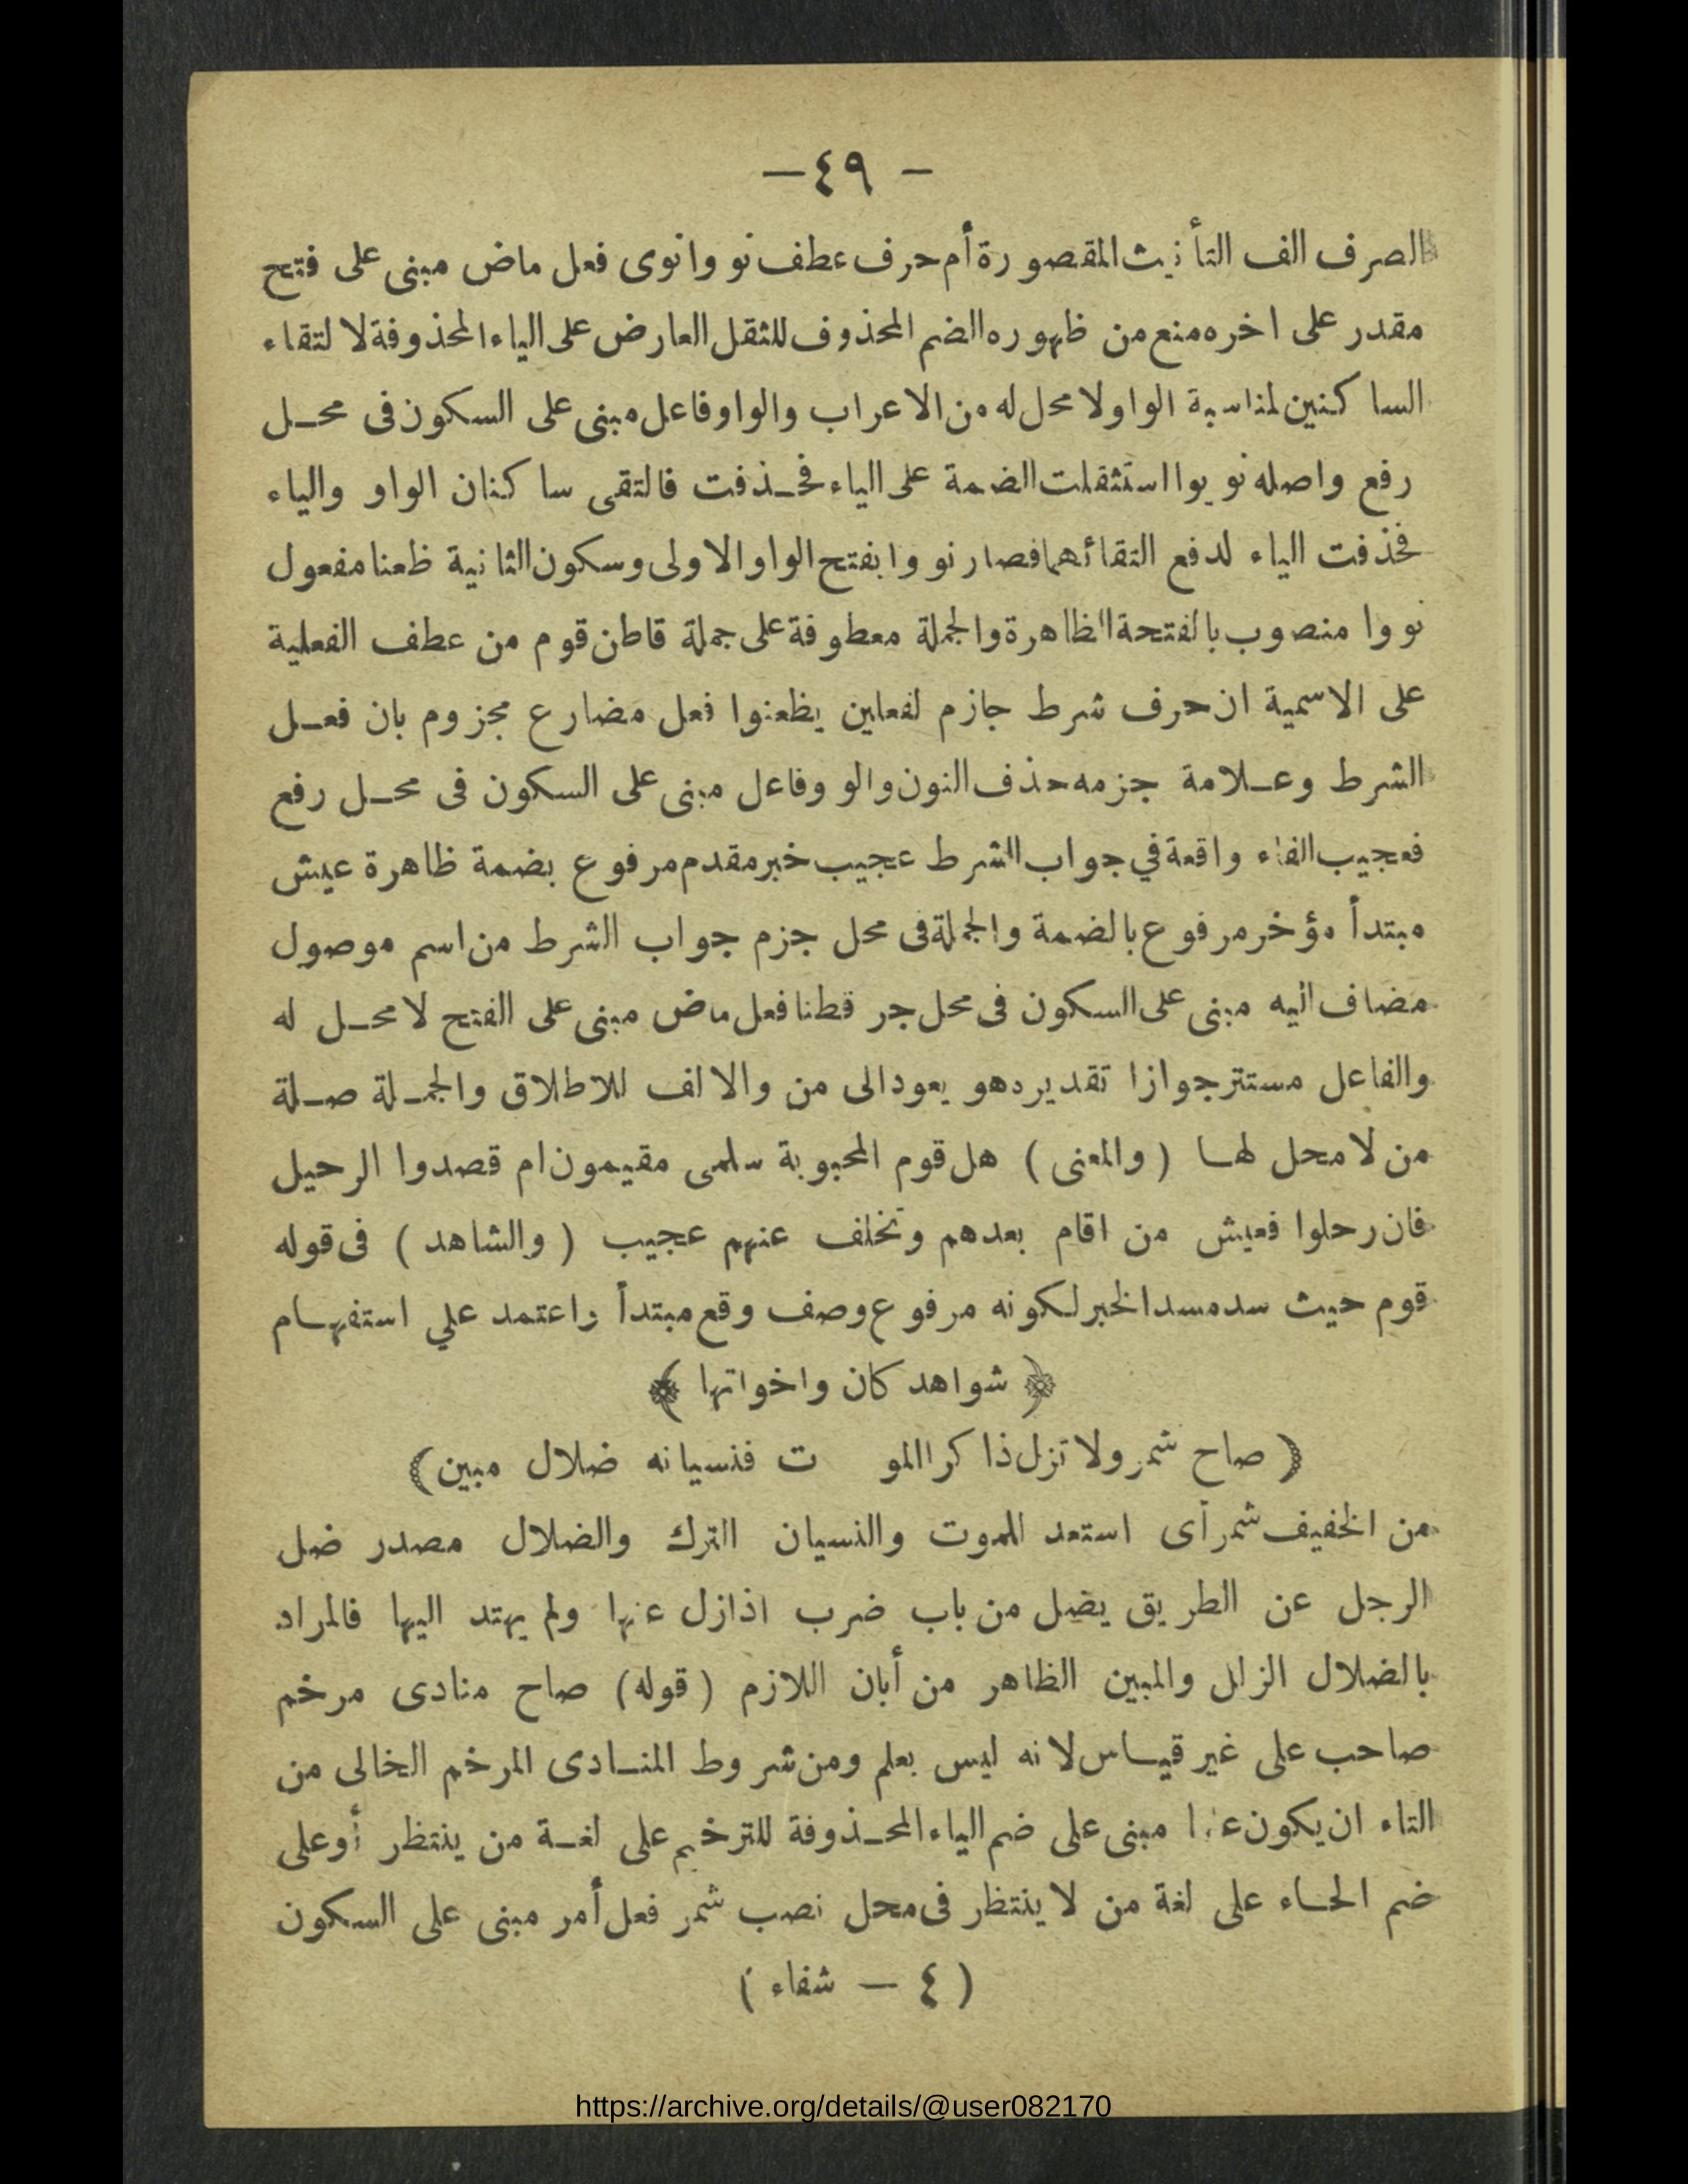 — ٤٩ —
الصرف الف التأنيث المقصورة أم حرف عطف نووا نوى فعل ماض مبنى على فتح
مقدر على اخره منع من ظهوره الضم المحذوف للثقل العارض على الياء المحذوفة لالتقاء
الساكنين لمناسبة الواو ولا محل له من الاعراب والواو فاعل مبنى على السكون فى محل
رفع واصله نويوا استثقلت الضمة على الياء فحذفت فالتقى ساكنان الواو والياء
فحذفت الياء لدفع التقائهما فصار نووا بفتح الواو الاولى وسكون الثانية ظعنا مفعول
نووا منصوب بالفتحة الظاهرة والجملة معطوفة على جملة قاطن قوم من عطف الفعلية
على الاسمية ان حرف شرط جازم لفعلين يظعنوا فعل مضارع مجزوم بان فعل
الشرط وعلامة جزمه حذف النون والو وفاعل مبنى على السكون فى محل رفع
فعجيب الفاء واقعة في جواب الشرط عجيب خبر مقدم مرفوع بضمة ظاهرة عيش
مبتدأ مؤخر مرفوع بالضمة والجملة فى محل جزم جواب الشرط من اسم موصول
مضاف اليه مبنى على السكون فى محل جر قطنا فعل ماض مبنى على الفتح لا محل له
والفاعل مستتر جوازا تقديره هو يعود الى من والالف للاطلاق والجملة صلة
من لا محل لها ( والمعنى ) هل قوم المحبوبة سلمى مقيمون ام قصدوا الرحيل
فان رحلوا فعيش من اقام بعدهم وتخلف عنهم عجيب ( والشاهد ) فى قوله
قوم حيث سد مسد الخبر لكونه مرفوع وصف وقع مبتدأ واعتمد علي استفهام
﴿ شواهد كان واخواتها ﴾
( صاح شمر ولا تزل ذاكر االمو ت فنسيانه ضلال مبين )
من الخفيف شمر أى استعد للموت والنسيان الترك والضلال مصدر ضل
الرجل عن الطريق يضل من باب ضرب اذا زل عنها ولم يهتد اليها فالمراد
بالضلال الزلل والمبين الظاهر من أبان اللازم ( قوله ) صاح منادى مرخم
صاحب على غير قياس لانه ليس بعلم ومن شروط المنادى المرخم الخالى من
التاء ان يكون مبنى على ضم الياء المحذوفة للترخيم على لغة من ينتظر أو على
ضم الحاء على لغة من لا ينتظر فى محل نصب شمر فعل أمر مبنى على السكون
( ٤ — شفاء )
https://archive.org/details/@user082170